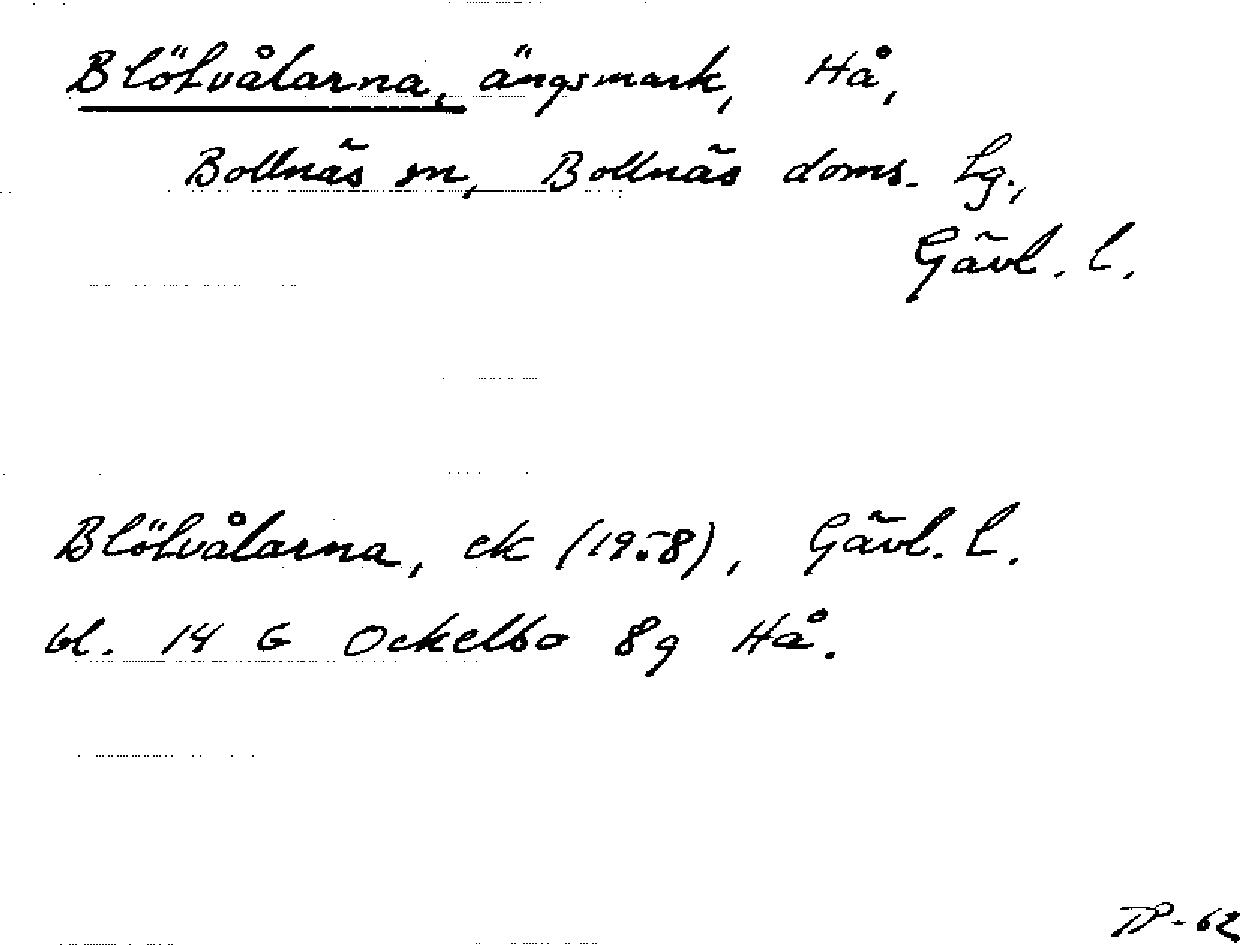 Blötvålarna, ängsmark, Hå,
Bollnäs sn, Bollnäs doms. Lg.,
Gävl. l.
Blötvålarna, ek (1958), Gävl. l.
bl. 14 G Ockelbo 8g Hå.
TP-62